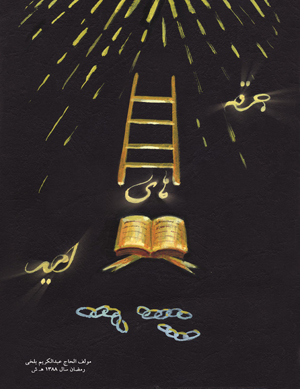 جرقه
های
امید
مولف الحاج عبدالکریم بلخی
رمضان سال ۱۳۸۸ هـ ش